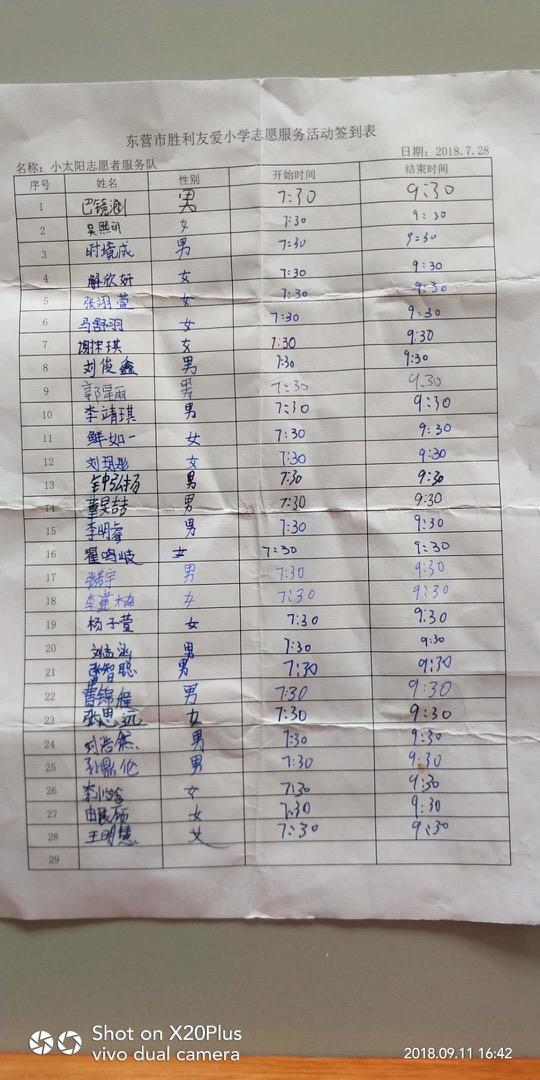 东营市胜利友爱小学志愿服务活动签到表
名称：小太阳志愿者服务队 日期：2018.7.28
序号 姓名 性别 开始时间 结束时间
1 巴镜测 男 7:30 9:30
2 吴熙明 女 7:30 9:30
3 时境成 男 7:30 9:30
4 解欣妍 女 7:30 9:30
5 张羽萱 女 7:30 9:30
6 马舒羽 女 7:30 9:30
7 琪 女 7:30 9:30
8 刘俊鑫 男 7:30 9:30
9 郭 男 7:30 9:30
10 李靖琪 男 7:30 9:30
11 鲜如一 女 7:30 9:30
12 刘 女 7:30 9:30
13 男 7:30 9:30
14 董昊喆 男 7:30 9:30
15 李明睿 男 7:30 9:30
16 翟鸣岐 女 7:30 9:30
17 张 宇 男 7:30 9:30
18 李 女 7:30 9:30
19 杨子萱 女 7:30 9:30
20 刘 涵 男 7:30 9:30
21 张智聪 男 7:30 9:30
22 曹锦程 男 7:30 9:30
23 张思远 女 7:30 9:30
24 刘浩然 男 7:30 9:30
25 孙鼎伦 男 7:30 9:30
26 李 女 7:30 9:30
27 由 硕 女 7:30 9:30
28 王明慧 女 7:30 9:30
29
Shot on X20Plus
vivo dual camera 2018.09.11 16:42